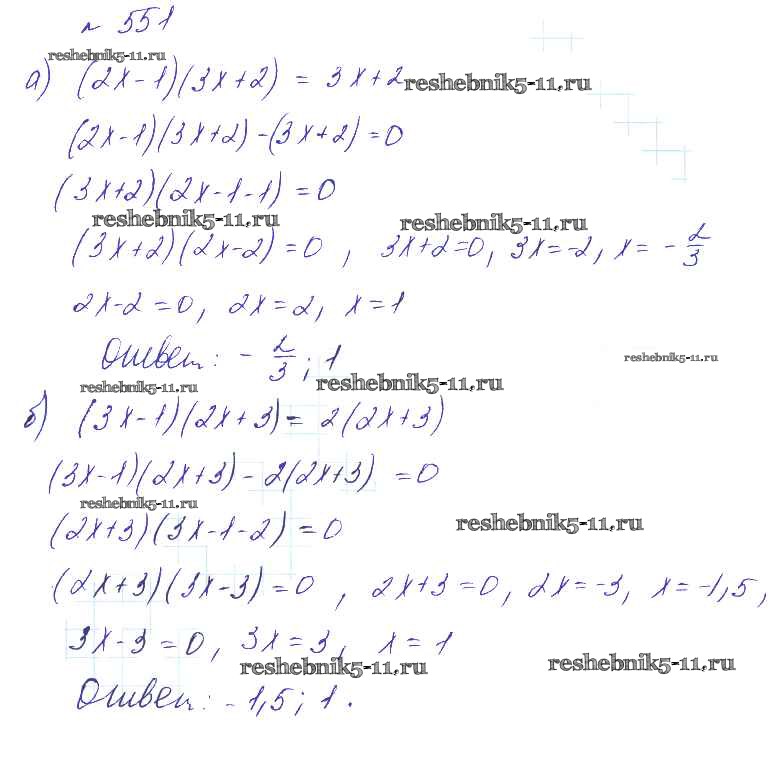 № 551
reshebnik5-11.ru
а) (2x-1)(3x+2) = 3x+2 reshebnik5-11.ru
(2x-1)(3x+2)-(3x+2)=0
(3x+2)(2x-1-1)=0
reshebnik5-11.ru reshebnik5-11.ru
(3x+2)(2x-2)=0, 3x+2=0, 3x=-2, x= -2/3
2x-2=0, 2x=2, x=1
Ответ: -2/3; 1
reshebnik5-11.ru
reshebnik5-11.ru reshebnik5-11.ru
б) (3x-1)(2x+3)= 2(2x+3)
(3x-1)(2x+3)-2(2x+3) =0
reshebnik5-11.ru
(2x+3)(3x-1-2)=0 reshebnik5-11.ru
(2x+3)(3x-3)=0, 2x+3=0, 2x=-3, x=-1,5,
3x-3=0, 3x=3, x=1
reshebnik5-11.ru reshebnik5-11.ru
Ответ: -1,5; 1.